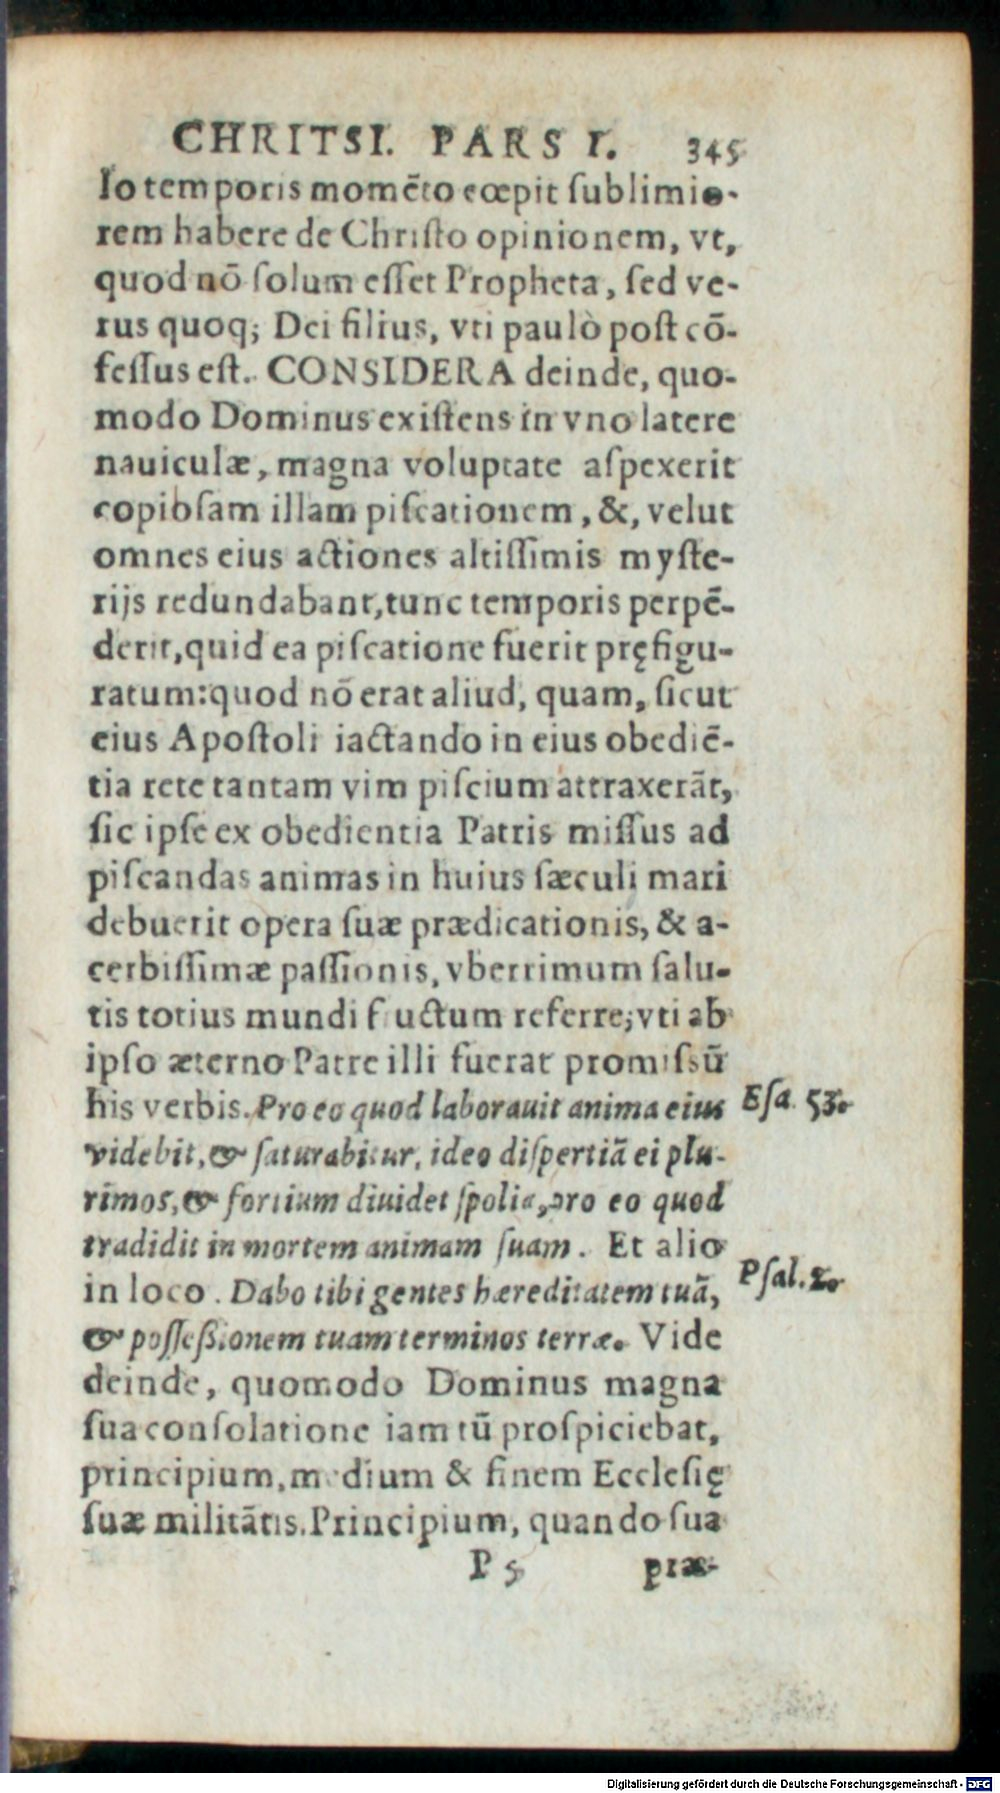 CHRITSI. PARS I. 345
lo temporis momẽto cœpit ſublimio-
rem habere de Chriſto opinionem, vt,
quod nõ ſolum eſſet Propheta, ſed ve-
rus quoq; Dei filius, vti paulò poſt cõ-
feſſus eſt. CONSIDERA deinde, quo-
modo Dominus exiſtens in vno latere
nauiculæ, magna voluptate aſpexerit
copioſam illam piſcationem, &, velut
omnes eius actiones altiſſimis myſte-
rijs redundabant, tunc temporis perpẽ-
derit, quid ea piſcatione fuerit pręfigu-
ratum: quod nõ erat aliud, quam, ſicut
eius Apoſtoli iactando in eius obediẽ-
tia rete tantam vim piſcium attraxerãt,
ſic ipſe ex obedientia Patris miſſus ad
piſcandas animas in huius ſæculi mari
debuerit opera ſuæ prædicationis, & a-
cerbiſſimæ paſſionis, vberrimum ſalu-
tis totius mundi f uctum referre; vti ab
ipſo æterno Patre illi fuerat promiſsũ
his verbis. Pro eo quod laborauit anima eius Eſa. 53.
videbit, & ſaturabitur, ideo diſpertiã ei plu-
rimos, & fortium diuidet ſpolia, pro eo quod
tradidit in mortem animam ſuam. Et alio
in loco. Dabo tibi gentes hæreditatem tuã, Pſal. 2.
& poſſeßionem tuam terminos terræ. Vide
deinde, quomodo Dominus magna
ſua conſolatione iam tũ proſpiciebat,
principium, medium & finem Eccleſię
ſuæ militãtis. Principium, quando ſua
P 5 præ-
Digitalisierung gefördert durch die Deutsche Forschungsgemeinschaft - DFG